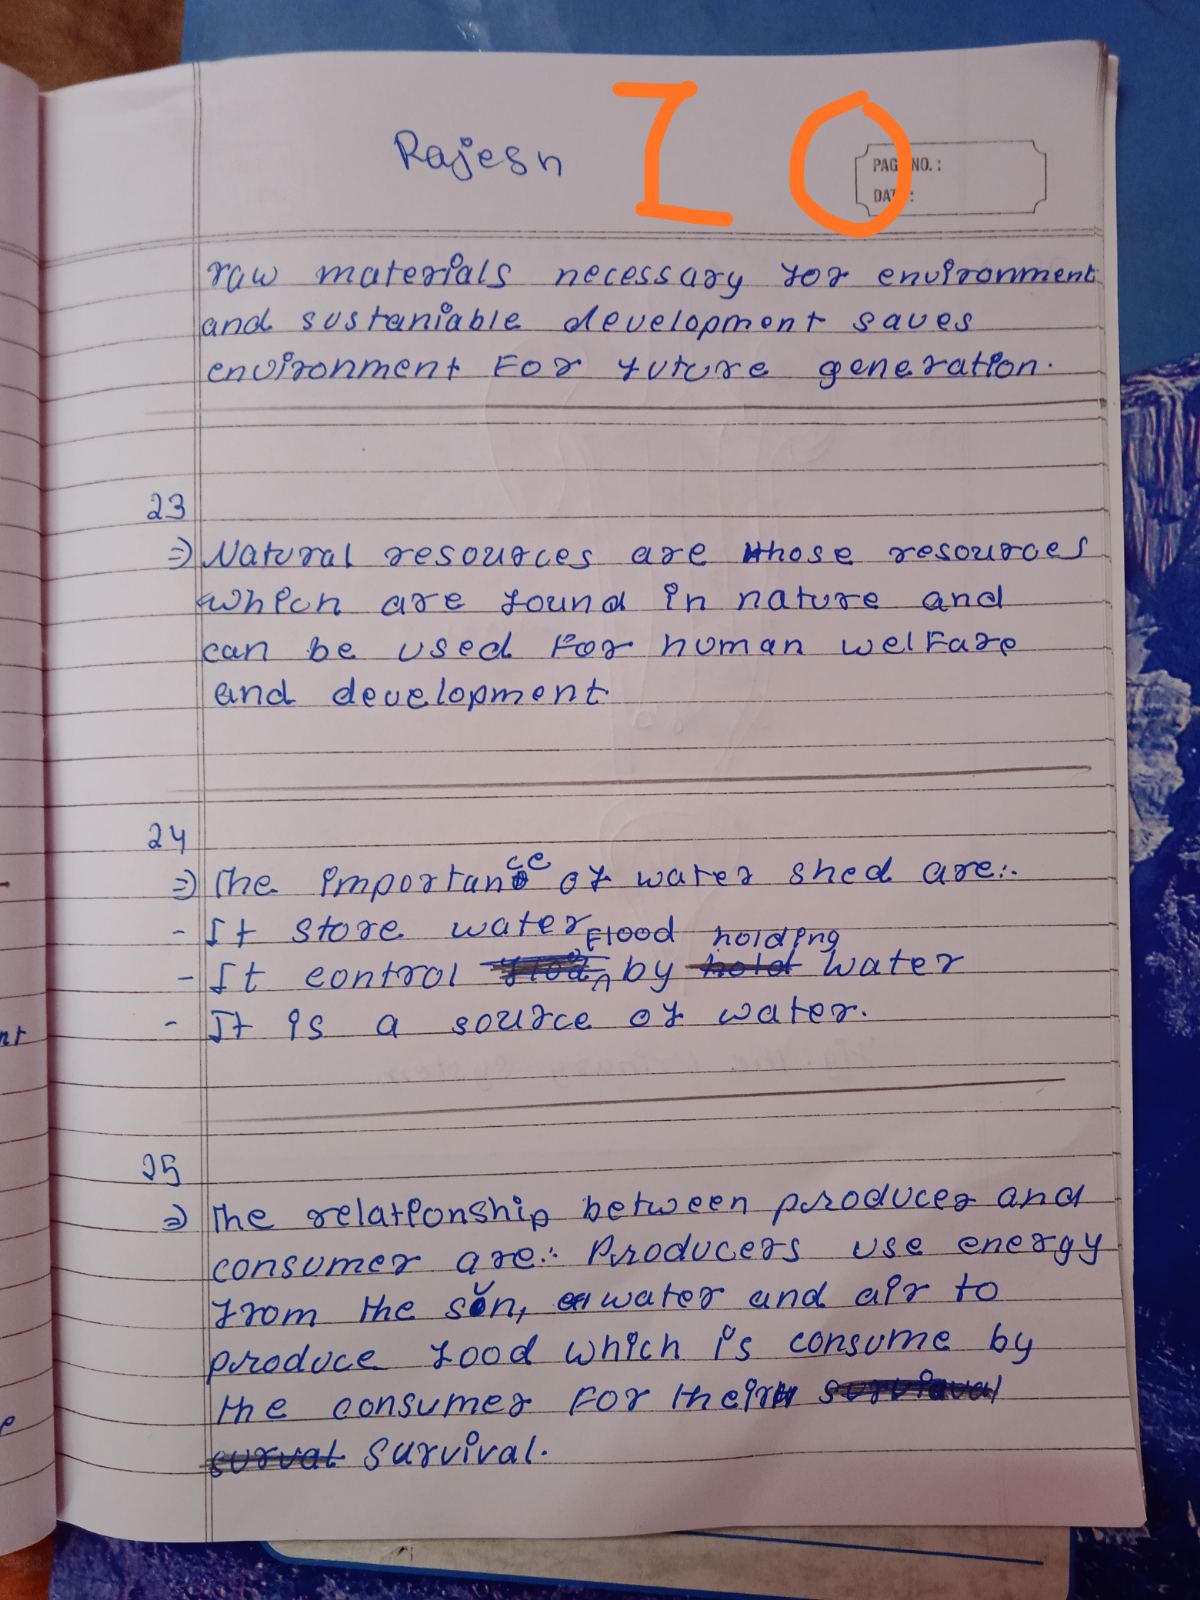 Rajesh
I O
PAGE NO. :
DATE :
raw materials necessary for environment
and sustaniable development saves
environment for future generation.
23
⇒ Natural resources are those resources
which are found in nature and
can be used for human welfare
and development
24
⇒ The importance of water shed are:-
- It store water
- It control flood by holding water
- It is a source of water.
25
⇒ The relationship between producer and
consumer are:- Producers use energy
from the sun, water and air to
produce food which is consume by
the consumer for their
survival.